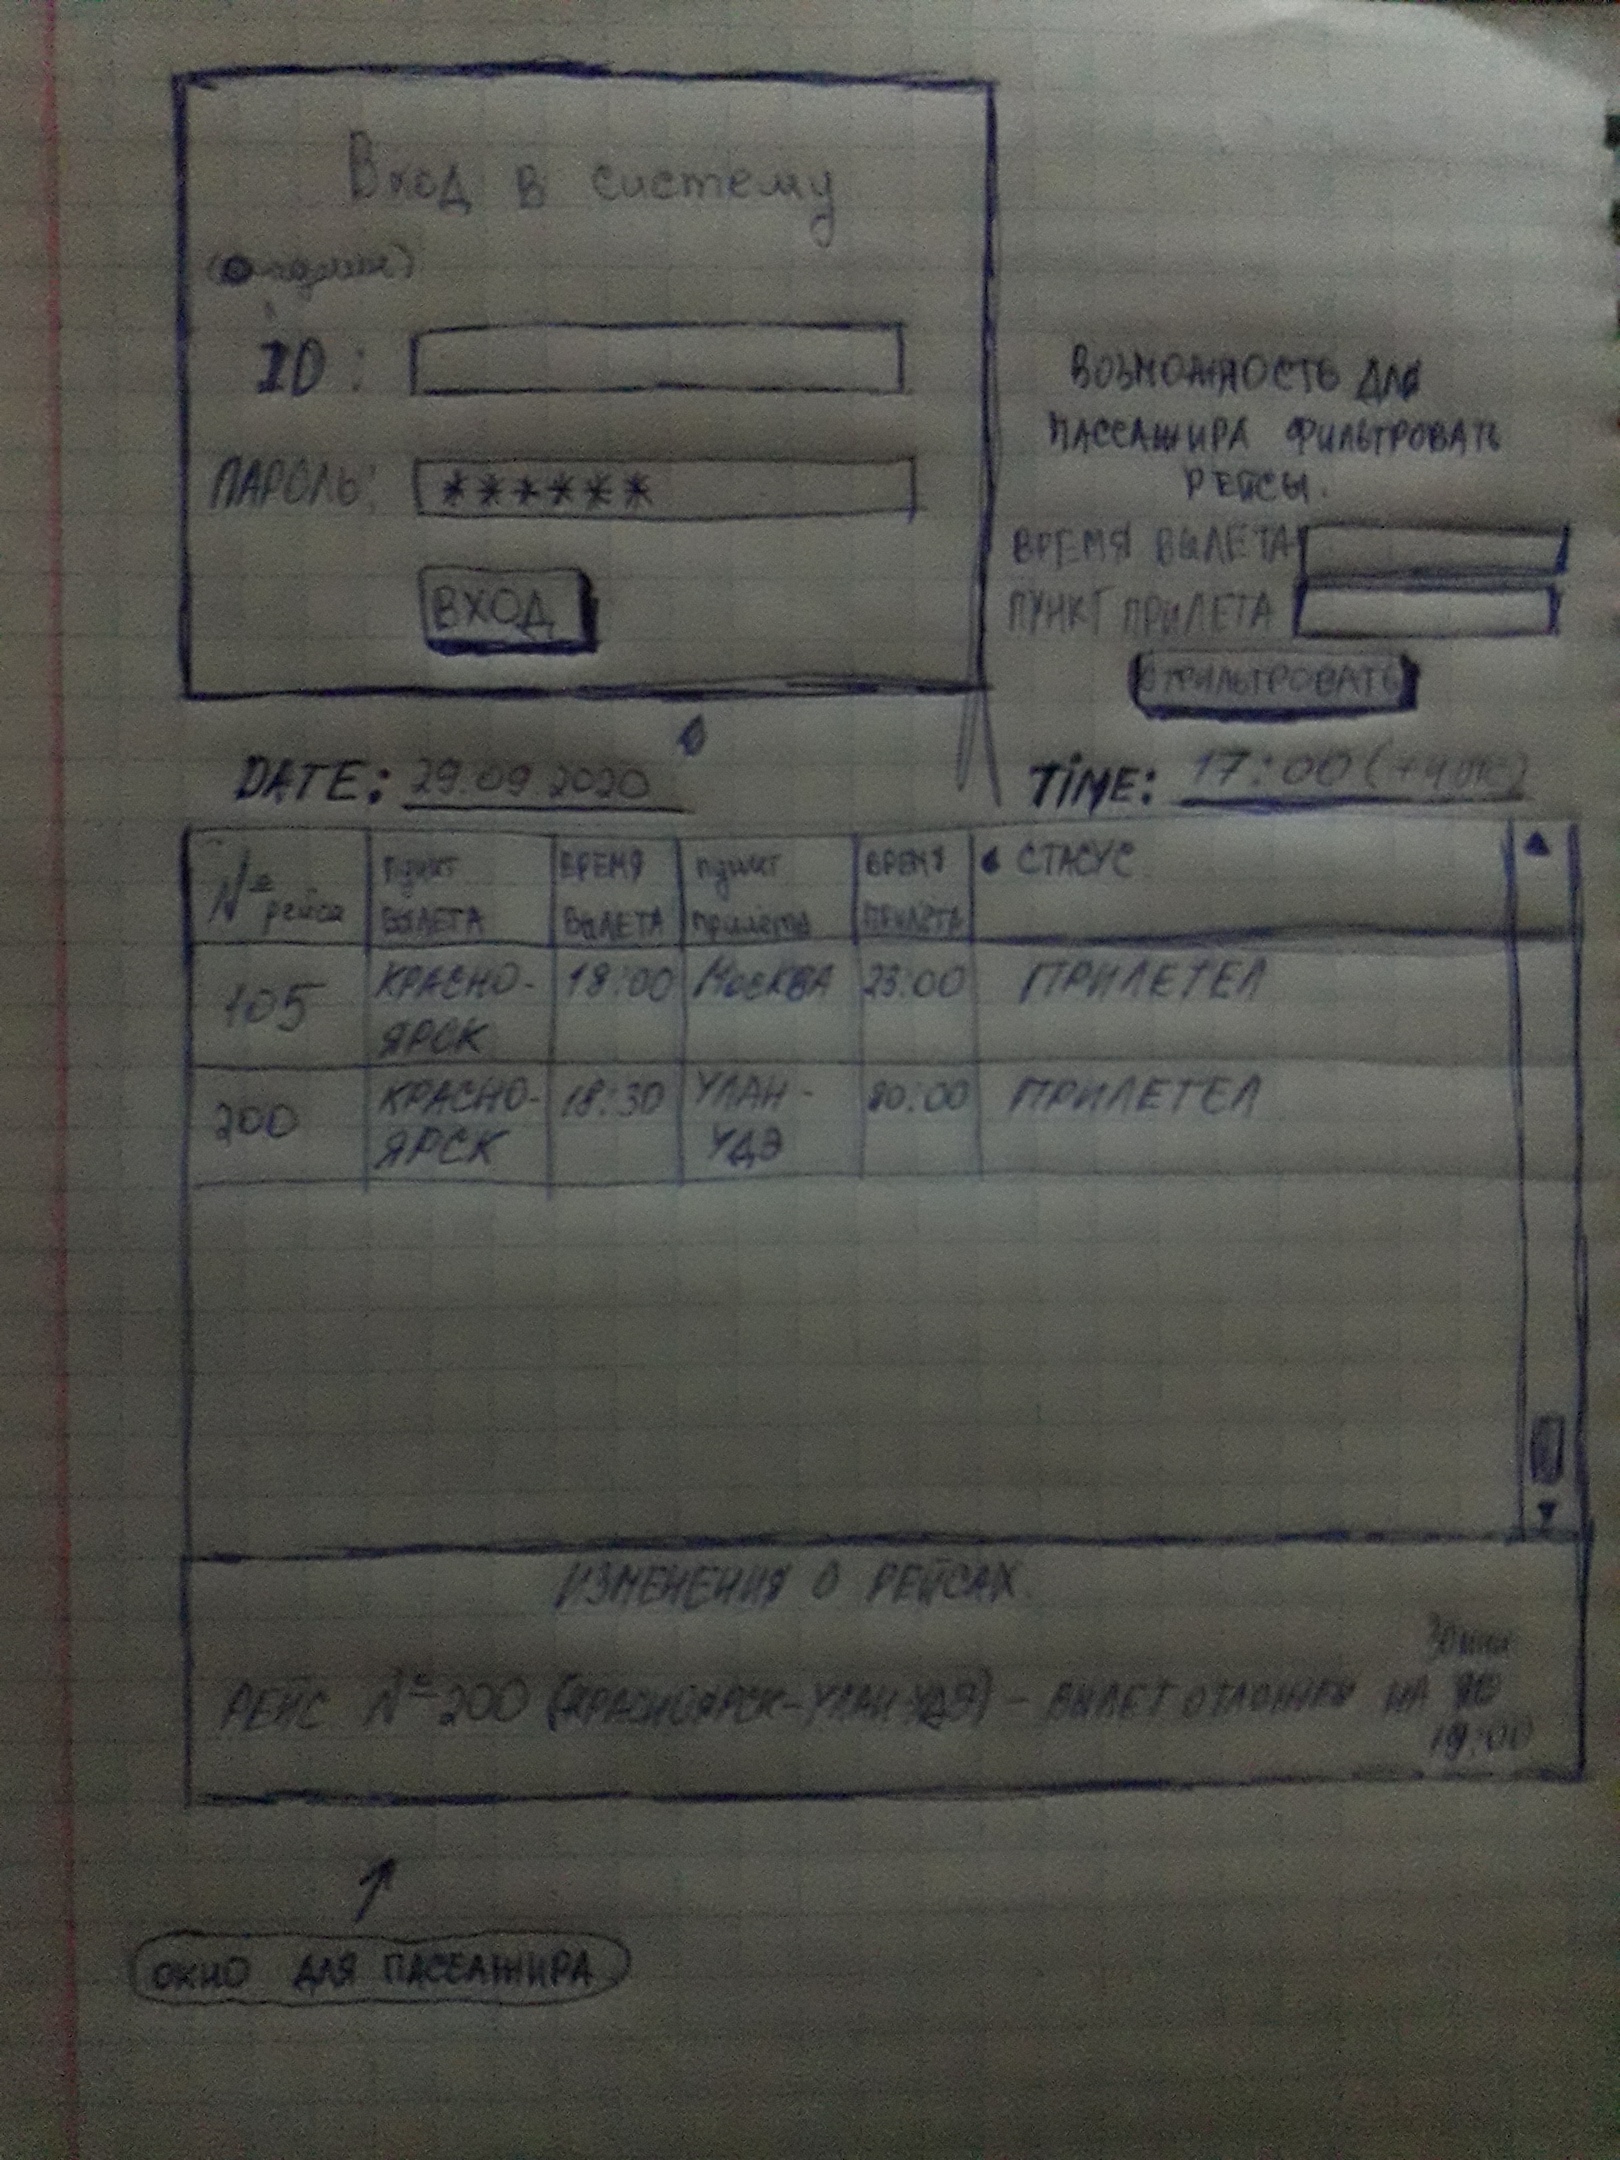 Вход в систему
ID:
ПАРОЛЬ: ******
ВХОД
ВОЗМОЖНОСТЬ ДЛЯ
ПАССАЖИРА ФИЛЬТРОВАТЬ
РЕЙСЫ.
ВРЕМЯ ВЫЛЕТА
ПУНКТ ПРИЛЕТА
ОТФИЛЬТРОВАТЬ
DATE: 29.09.2020
TIME: 17:00
№ рейса
пункт ВЫЛЕТА
ВРЕМЯ ВЫЛЕТА
пункт прилёта
ВРЕМЯ ПРИЛЁТА
СТАСУС
105 КРАСНО- 18:00 МОСКВА 23:00 ПРИЛЕТЕЛ
ЯРСК
200 КРАСНО- 18:30 УЛАН- ПРИЛЕТЕЛ
ЯРСК УДЭ
ИЗМЕНЕНИЯ О РЕЙСАХ.
30 мин
РЕЙС №200 (КРАСНОЯРСК-УЛАН-УДЭ) - ВЫЛЕТ ОТЛОЖЕН НА
19:00
ОКНО ДЛЯ ПАССАЖИРА